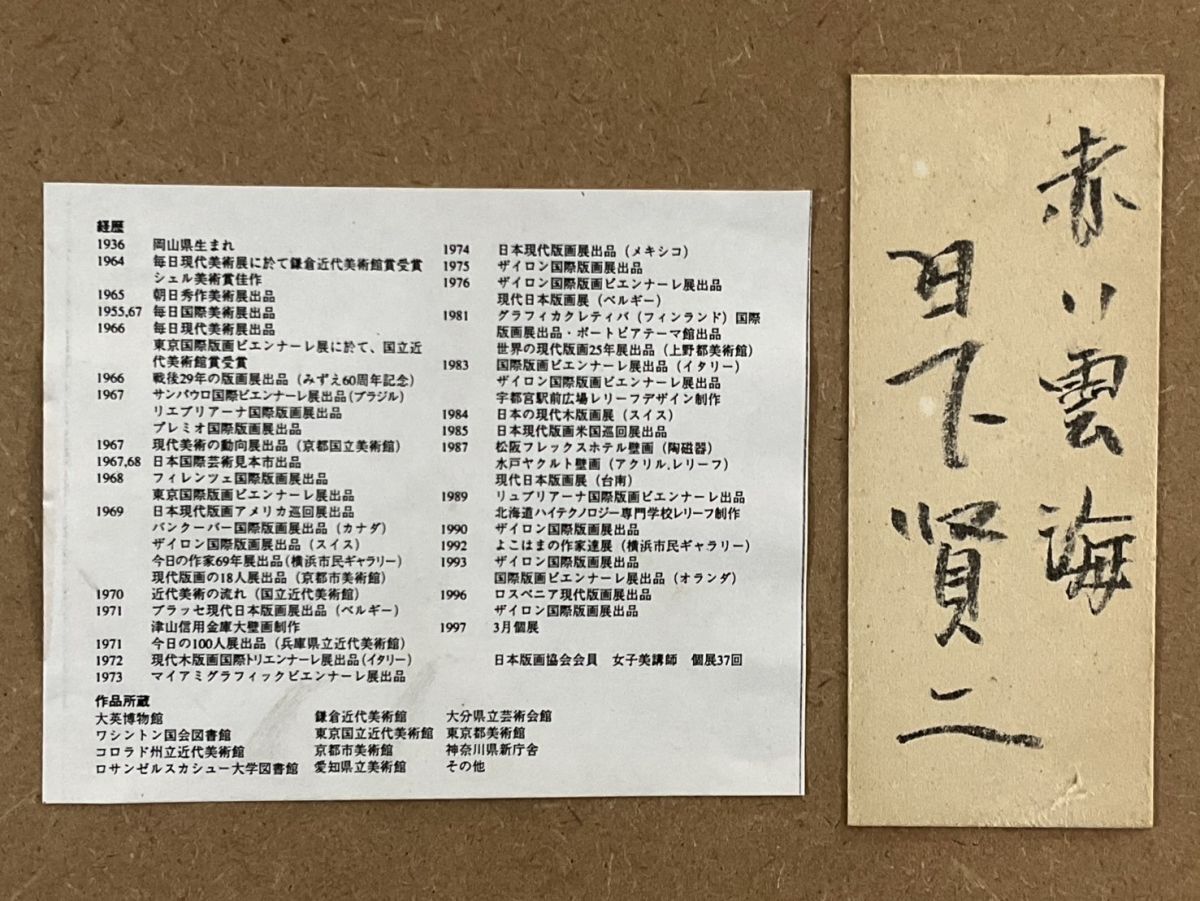 経歴
1936 岡山県生まれ
1964 毎日現代美術展に於て鎌倉近代美術館賞受賞
シェル美術賞佳作
1965 朝日秀作美術展出品
1955,67 毎日国際美術展出品
1966 毎日現代美術展出品
東京国際版画ビエンナーレ展に於て、国立近
代美術館賞受賞
1966 戦後29年の版画展出品（みずえ60周年記念）
1967 サンパウロ国際ビエンナーレ展出品(ブラジル)
リエブリアーナ国際版画展出品
プレミオ国際版画展出品
1967 現代美術の動向展出品（京都国立美術館）
1967,68 日本国際芸術見本市出品
1968 フィレンツェ国際版画展出品
東京国際版画ビエンナーレ展出品
1969 日本現代版画アメリカ巡回展出品
バンクーバー国際版画展出品（カナダ）
ザイロン国際版画展出品（スイス）
今日の作家69年展出品(横浜市民ギャラリー)
現代版画の18人展出品（京都市美術館）
1970 近代美術の流れ（国立近代美術館）
1971 ブラッセ現代日本版画展出品（ベルギー）
津山信用金庫大壁画制作
1971 今日の100人展出品（兵庫県立近代美術館）
1972 現代木版画国際トリエンナーレ展出品(イタリー)
1973 マイアミグラフィックビエンナーレ展出品
1974 日本現代版画展出品（メキシコ）
1975 ザイロン国際版画展出品
1976 ザイロン国際版画ビエンナーレ展出品
現代日本版画展（ベルギー）
1981 グラフィカクレティバ（フィンランド）国際
版画展出品・ポートピアテーマ館出品
世界の現代版画25年展出品（上野都美術館）
1983 国際版画ビエンナーレ展出品（イタリー）
ザイロン国際版画ビエンナーレ展出品
宇都宮駅前広場レリーフデザイン制作
1984 日本の現代木版画展（スイス）
1985 日本現代版画米国巡回展出品
1987 松阪フレックスホテル壁画（陶磁器）
水戸ヤクルト壁画（アクリル.レリーフ）
現代日本版画展（台南）
1989 リュブリアーナ国際版画ビエンナーレ出品
北海道ハイテクノロジー専門学校レリーフ制作
1990 ザイロン国際版画展出品
1992 よこはまの作家達展（横浜市民ギャラリー）
1993 ザイロン国際版画展出品
国際版画ビエンナーレ展出品（オランダ）
1996 ロスベニア現代版画展出品
ザイロン国際版画展出品
1997 3月個展
日本版画協会会員 女子美講師 個展37回
作品所蔵
大英博物館 鎌倉近代美術館 大分県立芸術会館
ワシントン国会図書館 東京国立近代美術館 東京都美術館
コロラド州立近代美術館 京都市美術館 神奈川県新庁舎
ロサンゼルスカシュー大学図書館 愛知県立美術館 その他
赤い雲海
日下賢二